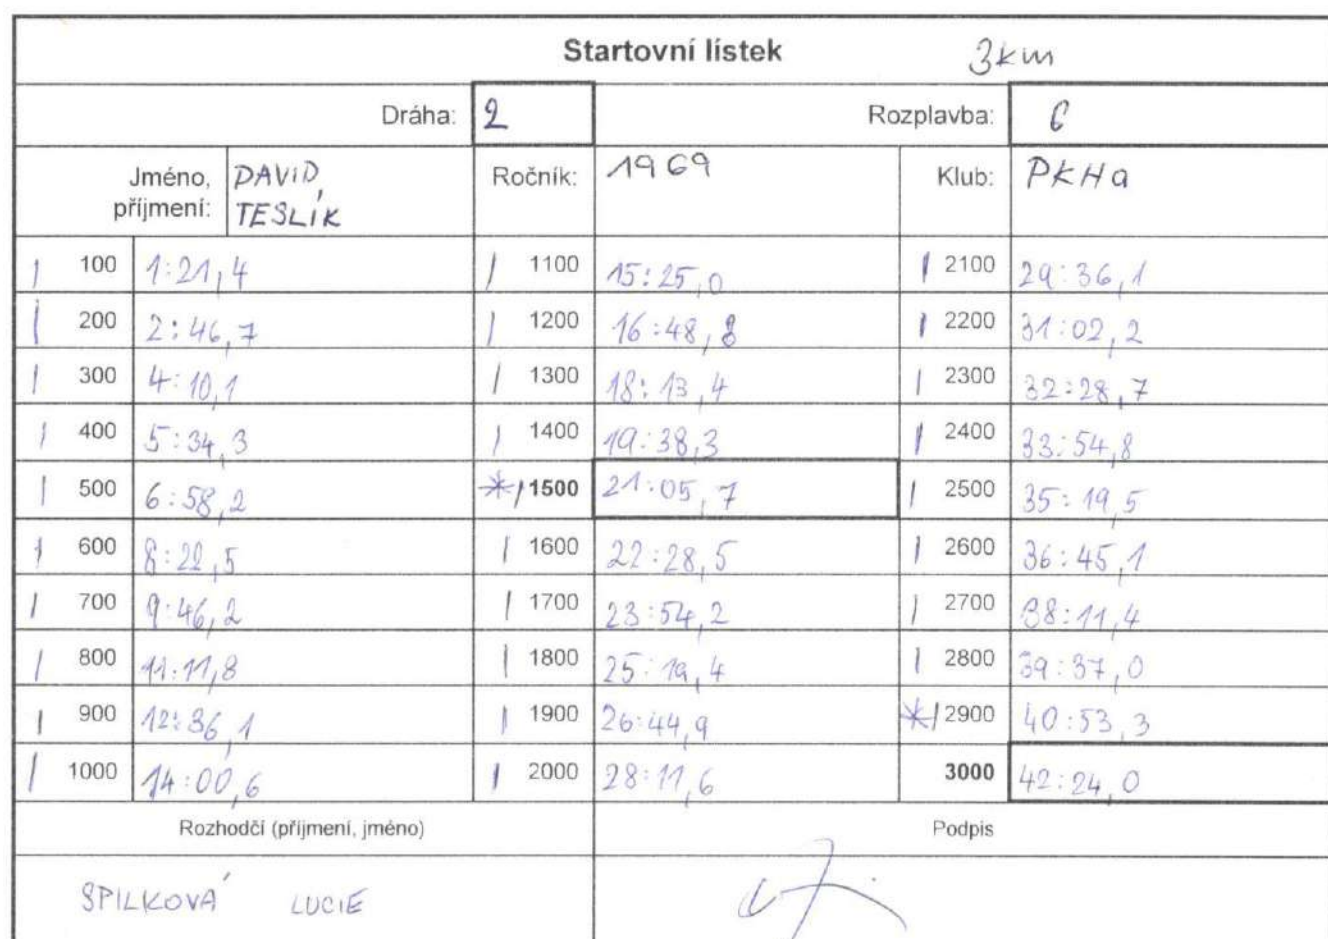 Startovní lístek 3km
Dráha: 2 Rozplavba: 6
Jméno, příjmení: DAVID, TESLÍK Ročník: 1969 Klub: PKHa
100 1:21,4 1100 15:25,0 2100 29:36,1
200 2:46,7 1200 16:48,8 2200 31:02,2
300 4:10,1 1300 18:13,4 2300 32:28,7
400 5:34,3 1400 19:38,3 2400 33:54,8
500 6:58,2 1500 21:05,7 2500 35:19,5
600 8:22,5 1600 22:28,5 2600 36:45,1
700 9:46,2 1700 23:54,2 2700 38:11,4
800 11:11,8 1800 25:19,4 2800 39:37,0
900 12:36,1 1900 26:44,9 2900 40:53,3
1000 14:00,6 2000 28:11,6 3000 42:24,0
Rozhodčí (příjmení, jméno) Podpis
SPILKOVÁ LUCIE